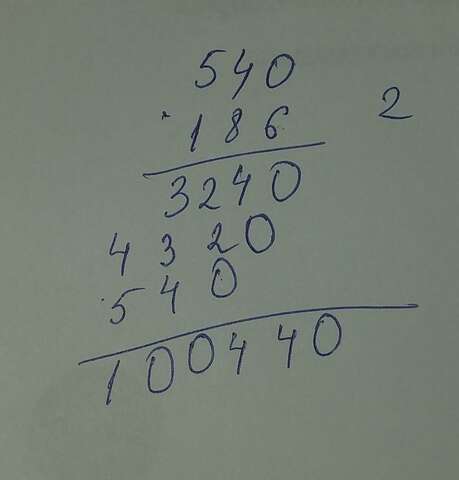 540
· 186 2
3240
4320
540
100440